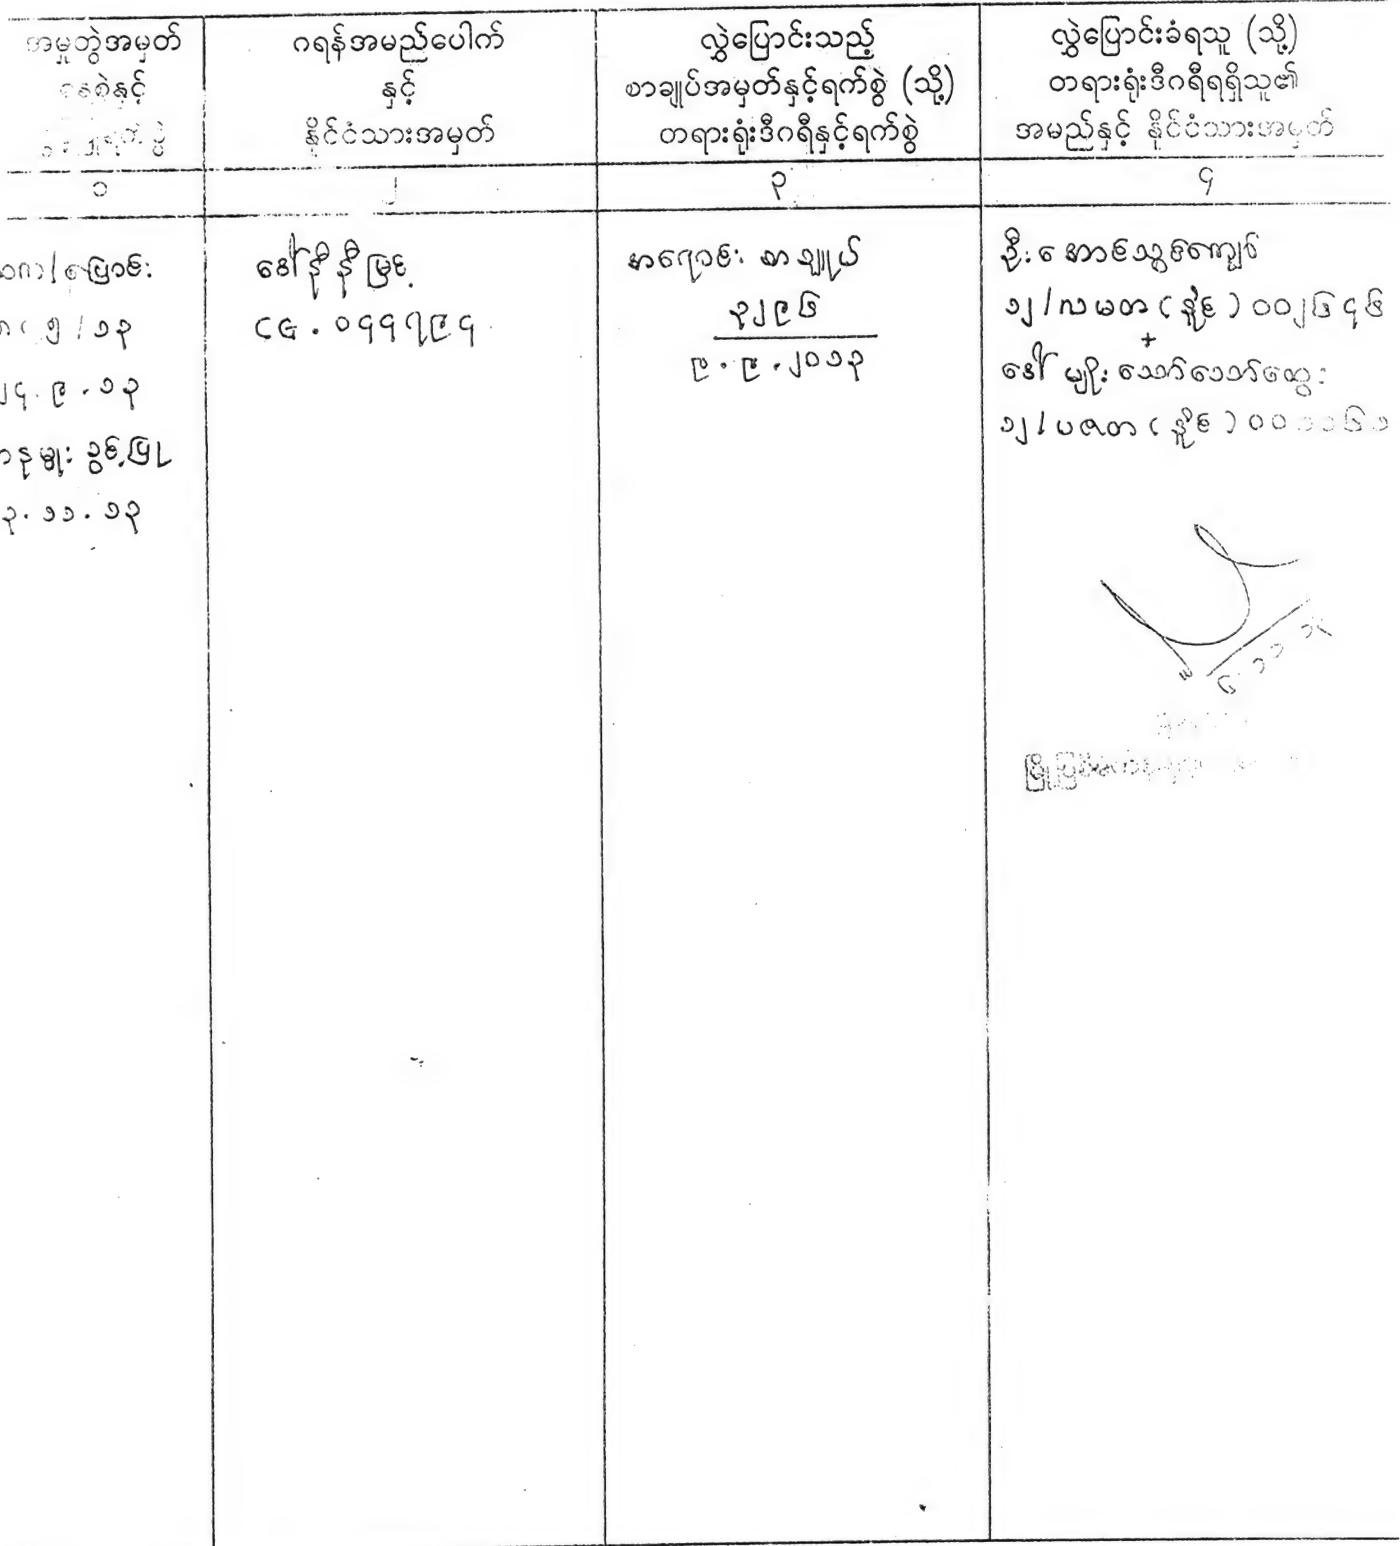 အမှုတွဲအမှတ်
နေ့စွဲနှင့်
ဂရန်အမည်ပေါက်
နှင့်
နိုင်ငံသားအမှတ်
လွှဲပြောင်းသည့်
စာချုပ်အမှတ်နှင့်ရက်စွဲ (သို့)
တရားရုံးဒီဂရီနှင့်ရက်စွဲ
လွှဲပြောင်းခံရသူ (သို့)
တရားရုံးဒီဂရီရရှိသူ၏
အမည်နှင့် နိုင်ငံသားအမှတ်
၁
၂
၃
၄
ပြောင်း
၅ / ၁၃
၂၄.၉.၁၃
မှူး ခွင့်ပြု
၃.၁၁.၁၃
ဒေါ်နီနီမြင့်
CG.၀၄၄၇၉၄
အရောင်း စာချုပ်
၃၂၉၆
၉.၉.၂၀၁၃
ဦးအောင်သွင်ကျော်
၁၂/လမတ(နိုင်)၀၀၂၆၄၆
+
ဒေါ်မျိုးသော်သော်ထွေး
၁၂/ပဇတ(နိုင်)၀၀၁၁၆၁
၆.၁၁.၁၃